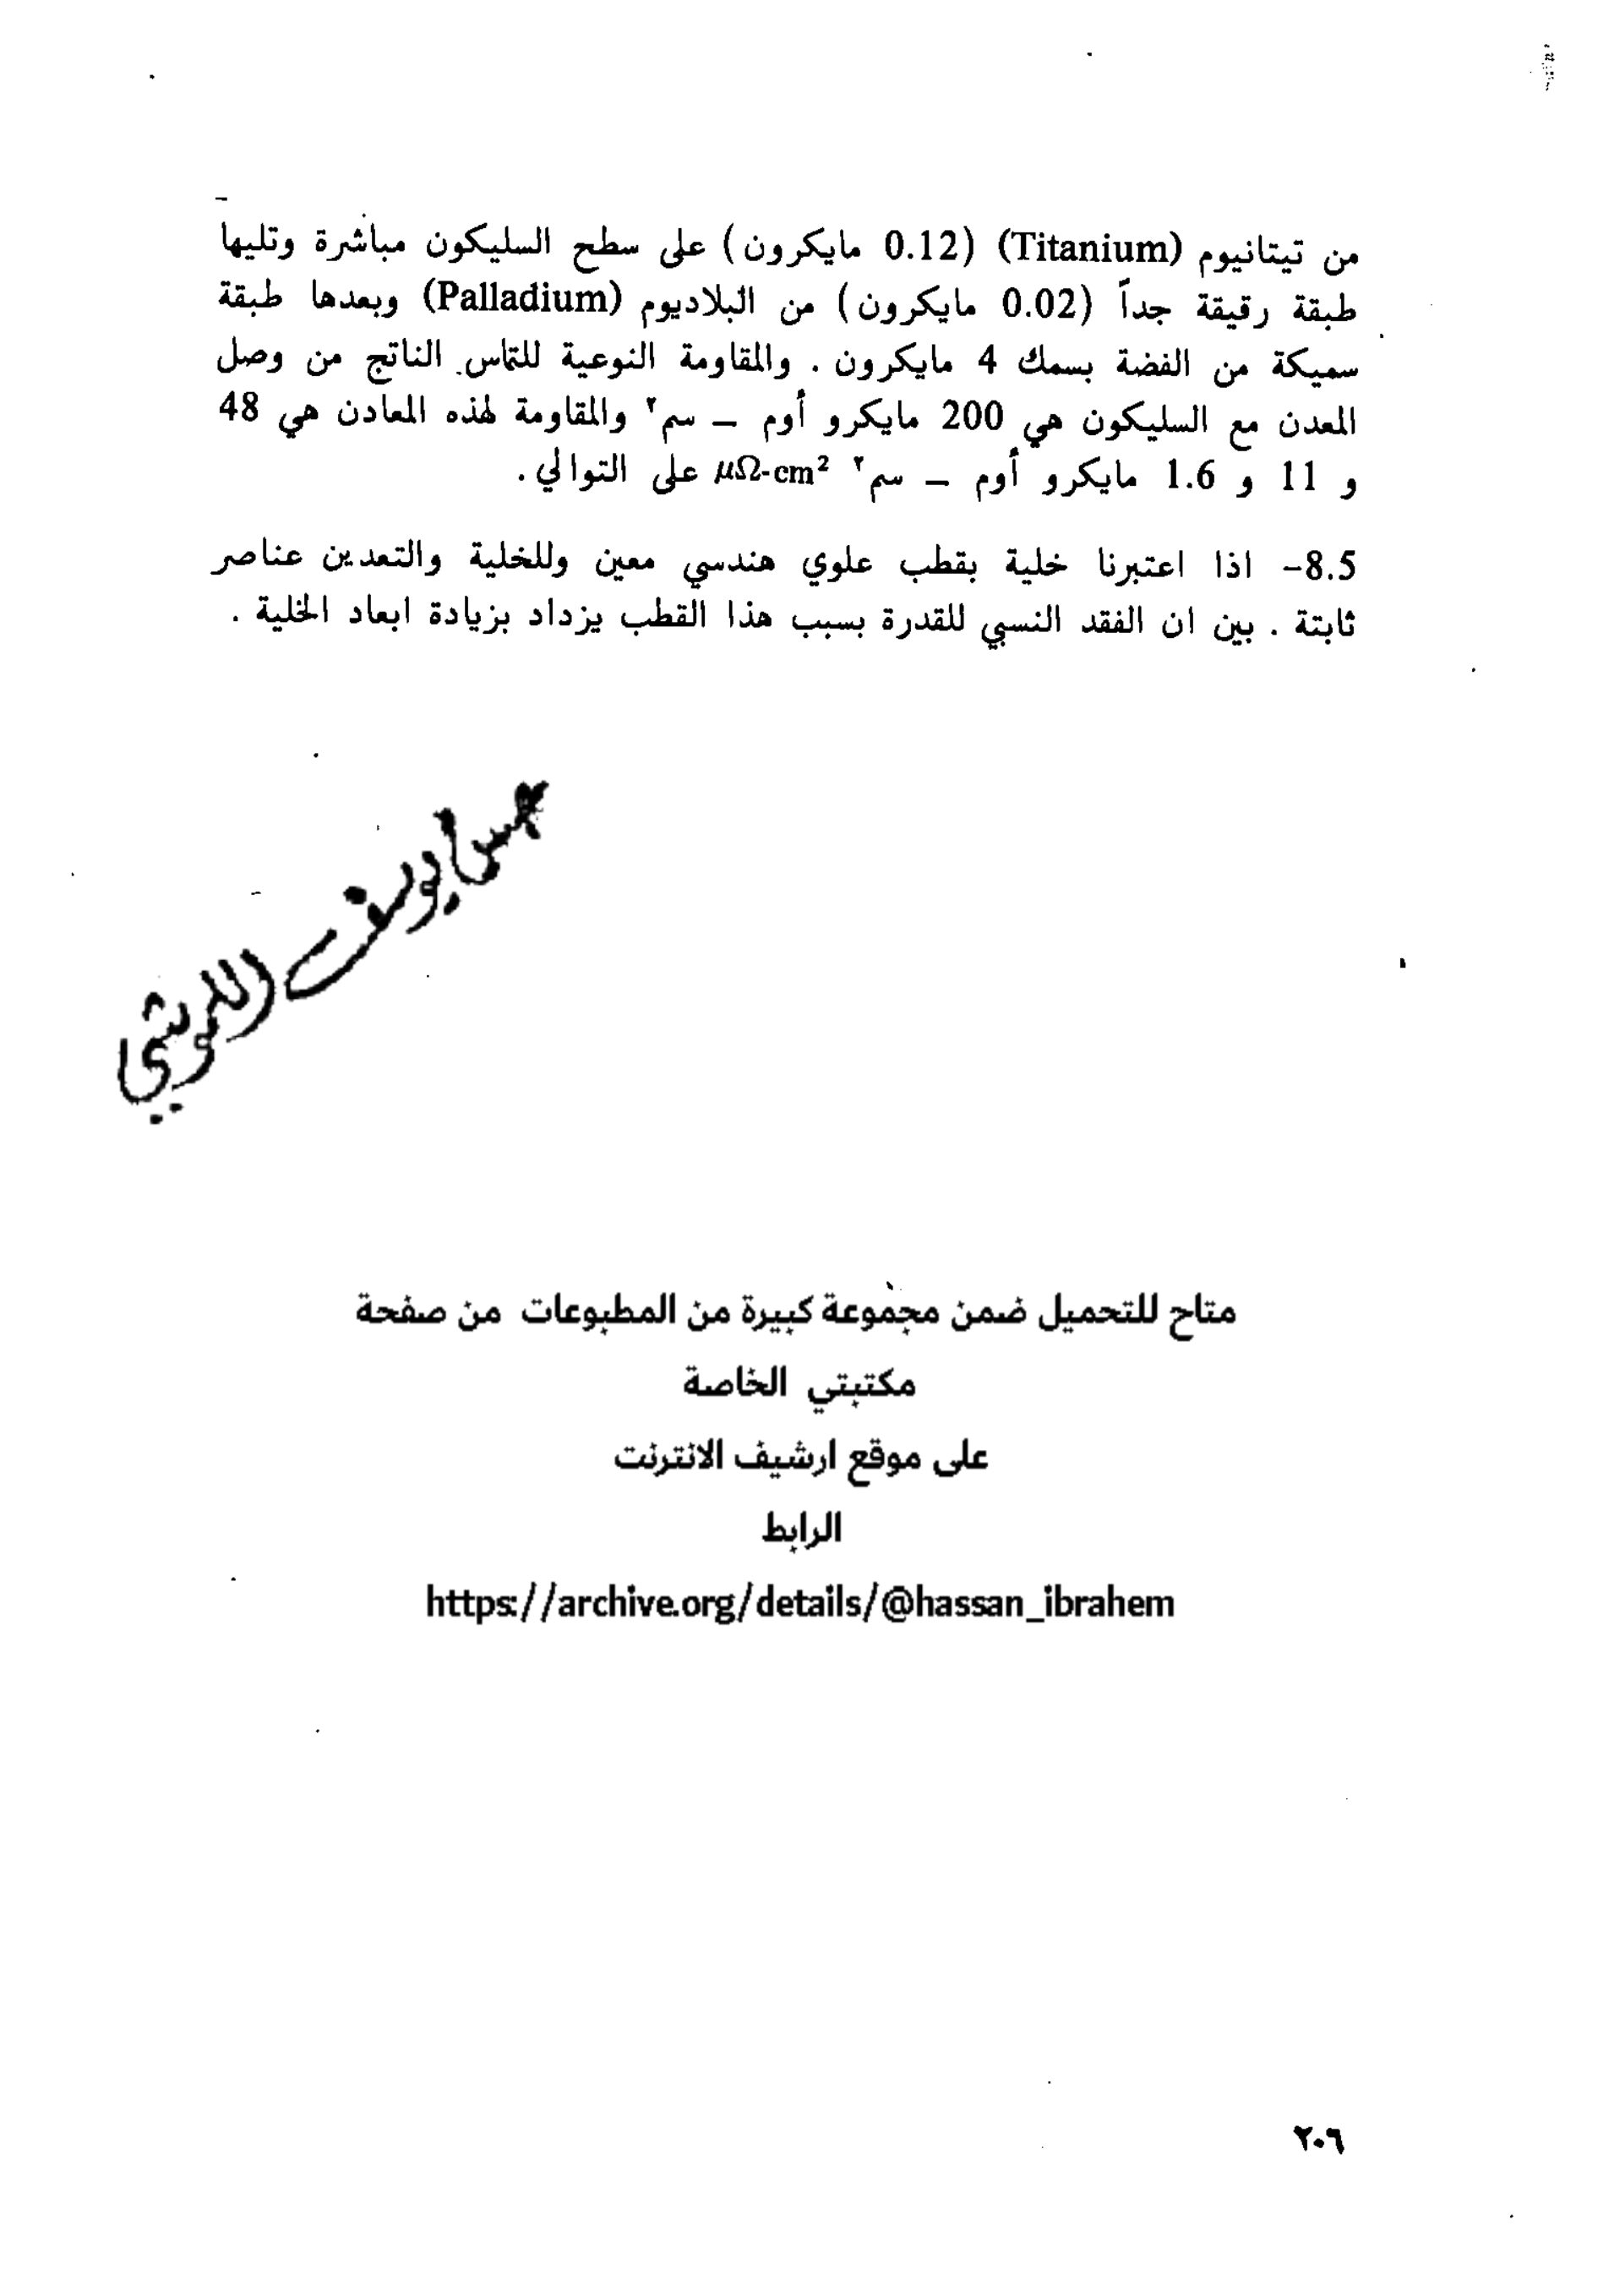 من تيتانيوم (Titanium) (0.12 مايكرون) على سطح السليكون مباشرة وتليها
طبقة رقيقة جداً (0.02 مايكرون) من البلاديوم (Palladium) وبعدها طبقة
سميكة من الفضة بسمك 4 مايكرون . والمقاومة النوعية للتماس الناتج من وصل
المعدن مع السليكون هي 200 مايكرو أوم – سم٢ والمقاومة لهذه المعادن هي 48
و 11 و 1.6 مايكرو أوم – سم٢ μΩ-cm² على التوالي .
8.5- اذا اعتبرنا خلية بقطب علوي هندسي معين وللخلية والتعدين عناصر
ثابتة . بين ان الفقد النسبي للقدرة بسبب هذا القطب يزداد بزيادة ابعاد الخلية .
يوسف
متاح للتحميل ضمن مجموعة كبيرة من المطبوعات من صفحة
مكتبتي الخاصة
على موقع ارشيف الانترنت
الرابط
https://archive.org/details/@hassan_ibrahem
٢٠٦